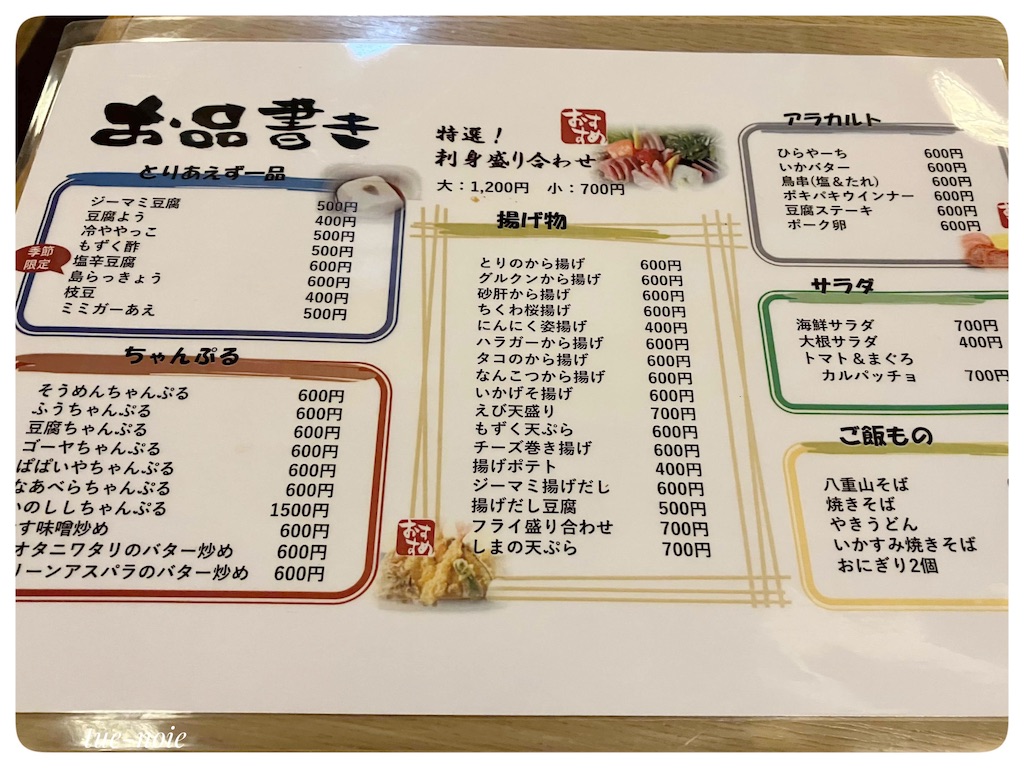 お品書き
とりあえず一品
ジーマミ豆腐 500円
豆腐よう 400円
冷ややっこ 500円
もずく酢 500円
季節限定
塩辛豆腐 600円
島らっきょう 600円
枝豆 400円
ミミガーあえ 500円
ちゃんぷる
そうめんちゃんぷる 600円
ふうちゃんぷる 600円
豆腐ちゃんぷる 600円
ゴーヤちゃんぷる 600円
ぱぱいやちゃんぷる 600円
なあべらちゃんぷる 600円
いのししちゃんぷる 1500円
す味噌炒め 600円
オタニワタリのバター炒め 600円
リーンアスパラのバター炒め 600円
特選！
刺身盛り合わせ
おすすめ
大：1,200円 小：700円
揚げ物
とりのから揚げ 600円
グルクンから揚げ 600円
砂肝から揚げ 600円
ちくわ桜揚げ 600円
にんにく姿揚げ 400円
ハラガーから揚げ 600円
タコのから揚げ 600円
なんこつから揚げ 600円
いかげそ揚げ 600円
えび天盛り 700円
もずく天ぷら 600円
チーズ巻き揚げ 600円
揚げポテト 400円
ジーマミ揚げだし 600円
揚げだし豆腐 500円
フライ盛り合わせ 700円
しまの天ぷら 700円
おすすめ
アラカルト
ひらやーち 600円
いかバター 600円
鳥串(塩＆たれ) 600円
ポキパキウインナー 600円
豆腐ステーキ 600円
ポーク卵 600円
サラダ
海鮮サラダ 700円
大根サラダ 400円
トマト＆まぐろ
カルパッチョ 700円
ご飯もの
八重山そば
焼きそば
やきうどん
いかすみ焼きそば
おにぎり2個
tue-noie